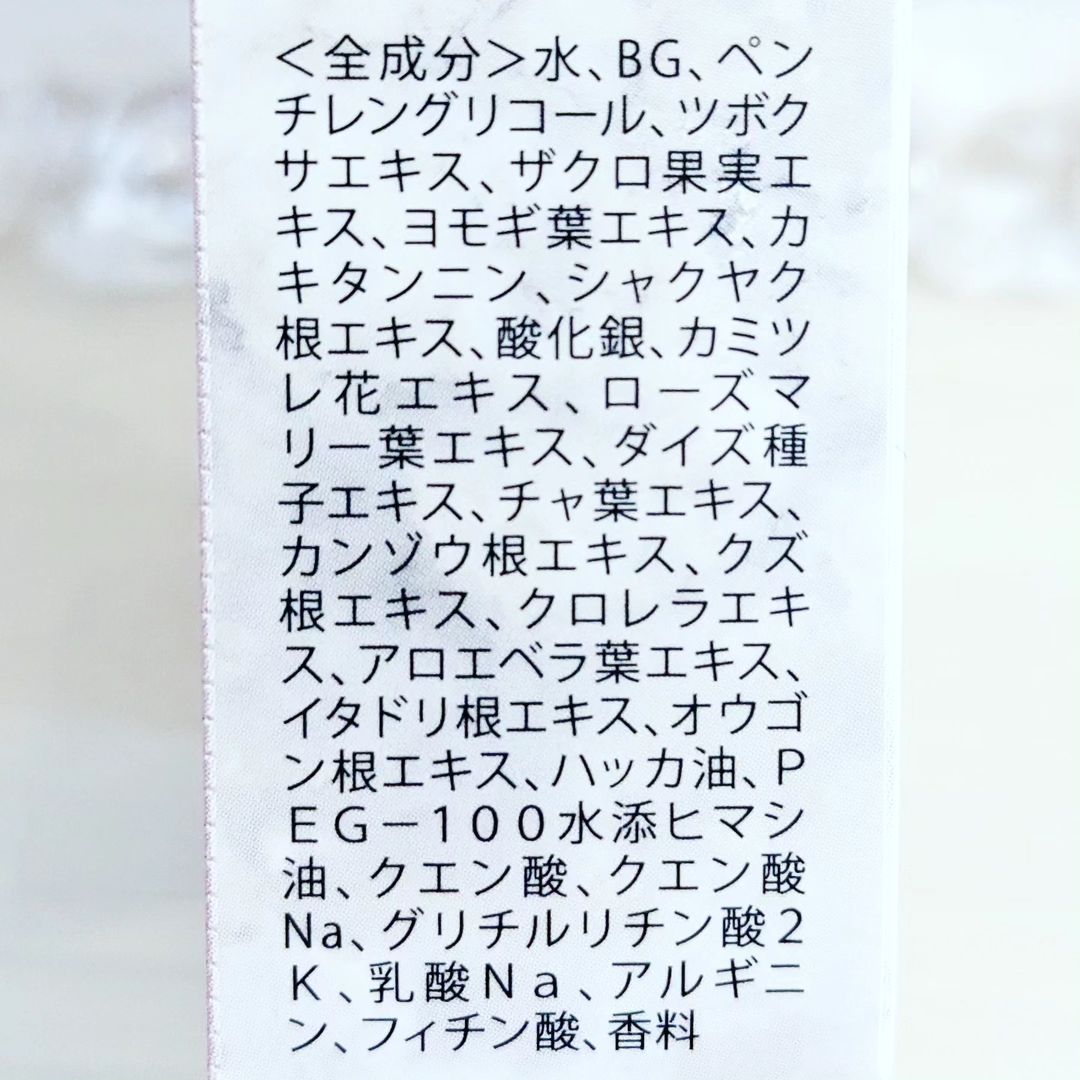 ＜全成分＞水、BG、ペン
チレングリコール、ツボク
サエキス、ザクロ果実エ
キス、ヨモギ葉エキス、カ
キタンニン、シャクヤク
根エキス、酸化銀、カミツ
レ花エキス、ローズマ
リー葉エキス、ダイズ種
子エキス、チャ葉エキス、
カンゾウ根エキス、クズ
根エキス、クロレラエキ
ス、アロエベラ葉エキス、
イタドリ根エキス、オウゴ
ン根エキス、ハッカ油、Ｐ
ＥＧ－１００水添ヒマシ
油、クエン酸、クエン酸
Na、グリチルリチン酸２
Ｋ、乳酸Ｎａ、アルギニ
ン、フィチン酸、香料